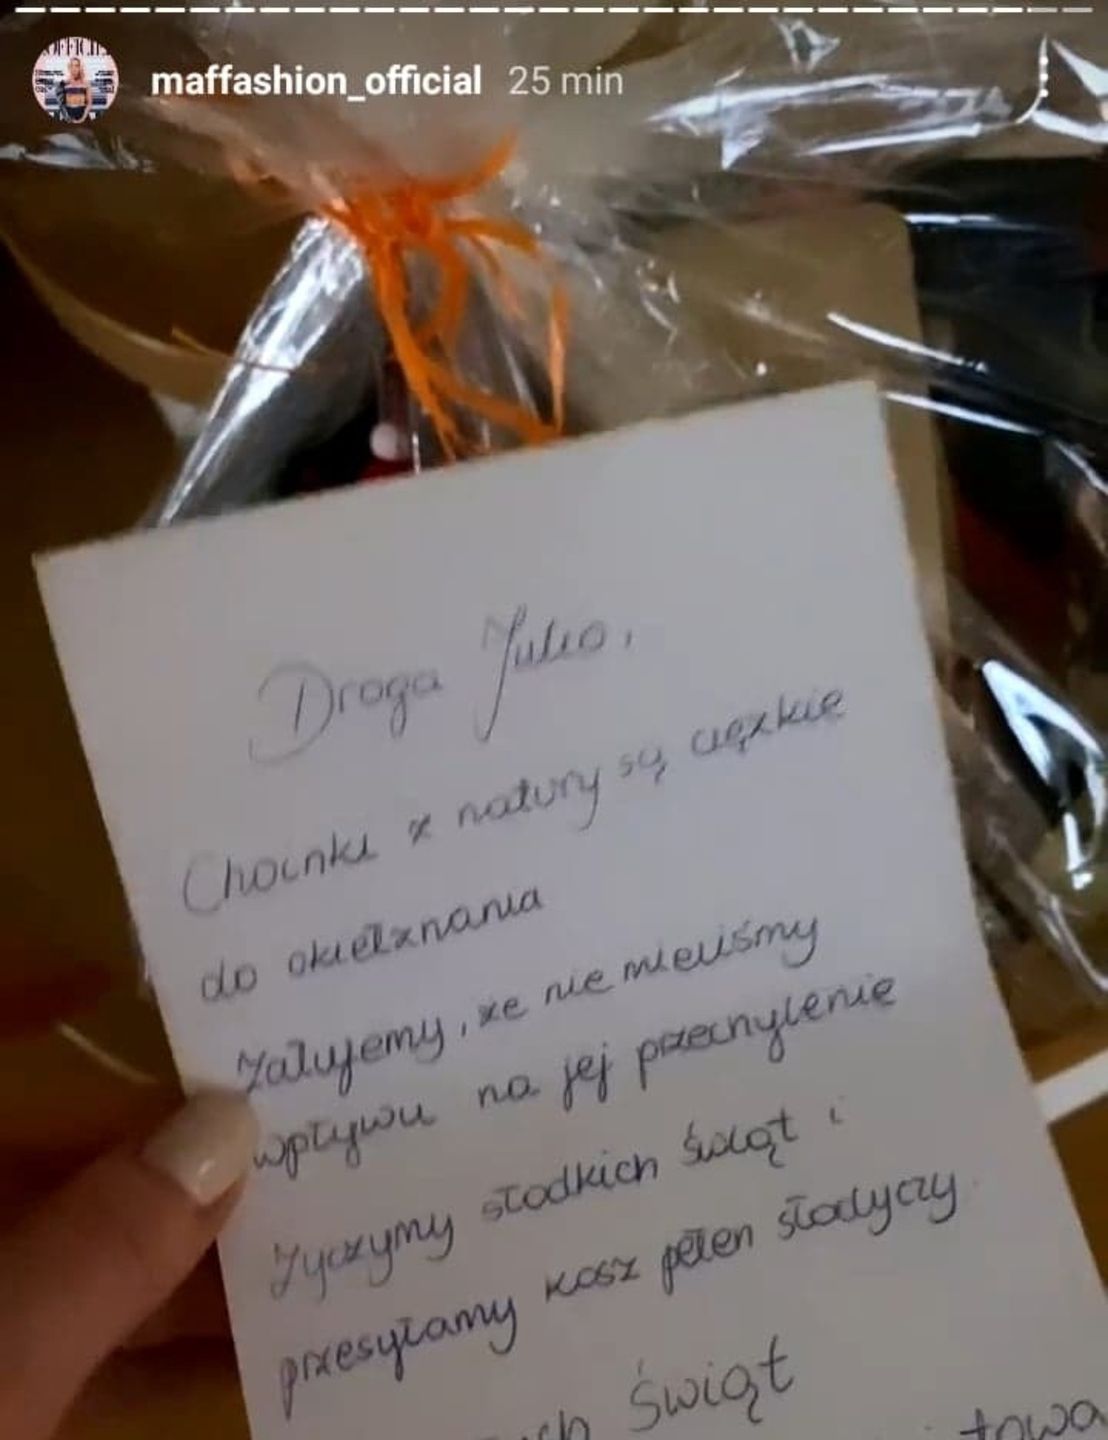 maffashion_official 25 min
Droga Julio,
Choinki z natury są ciężkie
do okiełznania
Żałujemy, że nie mieliśmy
wpływu na jej przechylenie
Życzymy słodkich świąt i
przesyłamy kosz pełen słodyczy
Świąt